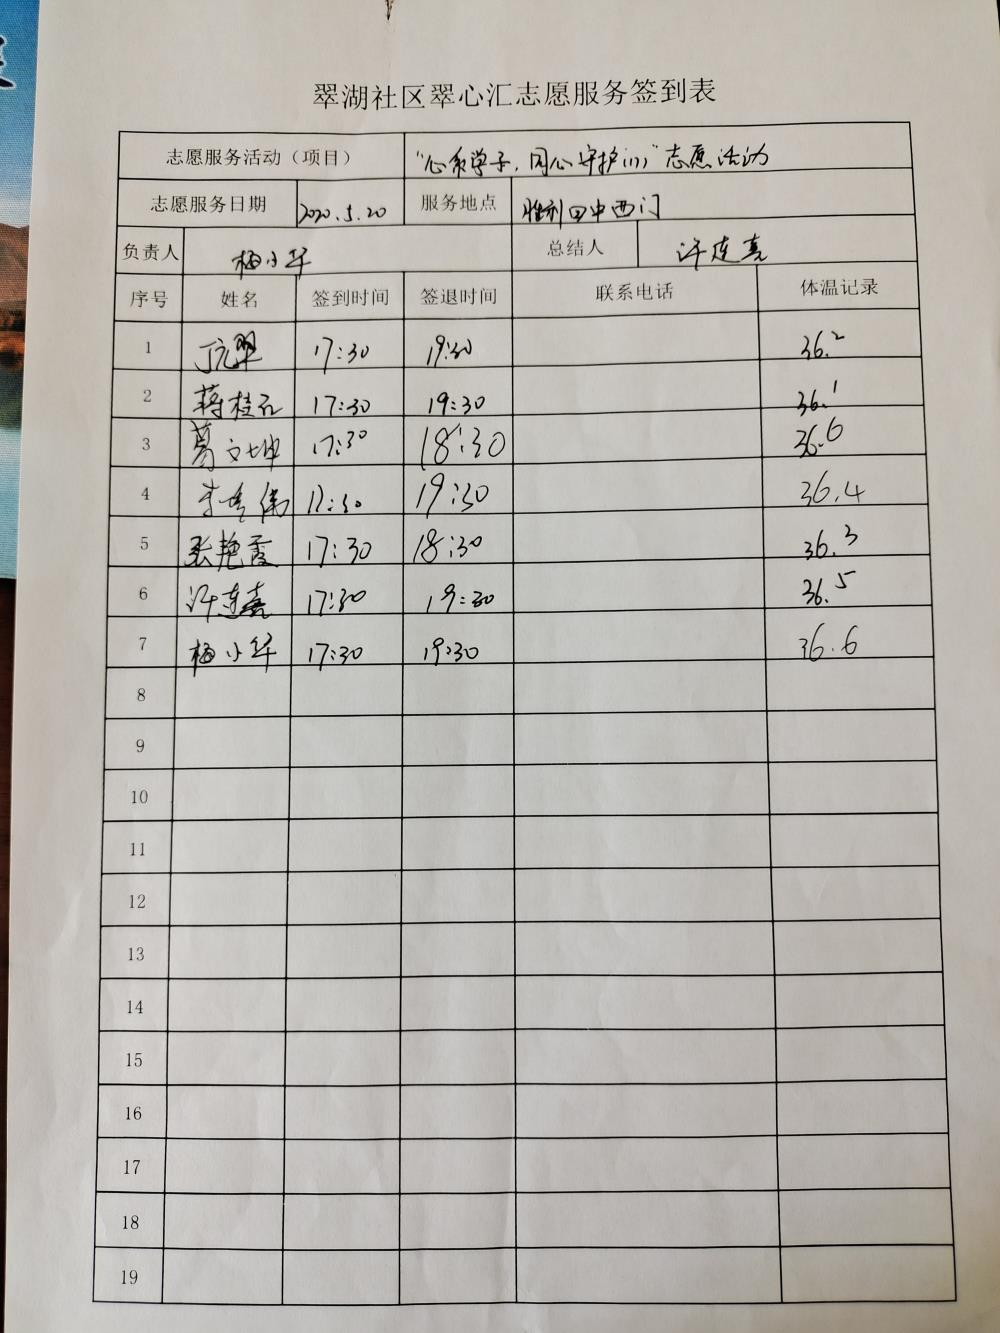 翠湖社区翠心汇志愿服务签到表
志愿服务活动（项目） “心系学子，同心守护行”志愿活动
志愿服务日期 2020.5.20 服务地点 胜利四中西门
负责人 梅小华 总结人 许连喜
序号 姓名 签到时间 签退时间 联系电话 体温记录
1 17:30 19:30 36.2
2 蒋桂花 17:30 19:30 36.1
3 葛文坤 17:30 18:30 36.6
4 17:30 19:30 36.4
5 张艳霞 17:30 18:30 36.3
6 许连喜 17:30 19:30 36.5
7 梅小华 17:30 19:30 36.6
8
9
10
11
12
13
14
15
16
17
18
19